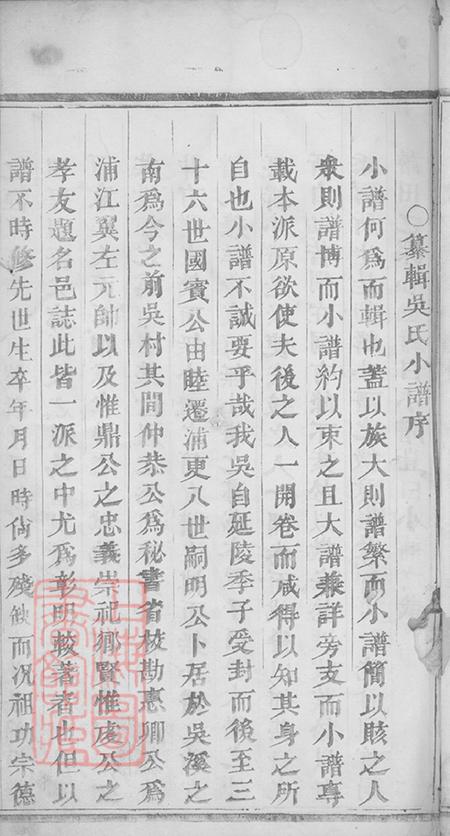 ○纂輯吳氏小譜序
小譜何爲而輯也蓋以族大則譜繁而小譜簡以賅之人
衆則譜博而小譜約以束之且大譜兼詳旁支而小譜專
載本派原欲使夫後之人一開卷而咸得以知其身之所
自也小譜不誠要乎哉我吳自延陵季子受封而後至三
十六世國賓公由睦遷浦更八世嗣明公卜居於吳溪之
南爲今之前吳村其間仲恭公爲秘書省校勘惠卿公爲
浦江翼左元帥以及惟鼎公之忠義崇祀鄉賢惟虔公之
孝友題名邑誌此皆一派之中尤爲彰明較著者也但以
譜不時修先世生卒年月日時尙多殘缺而況祖功宗德